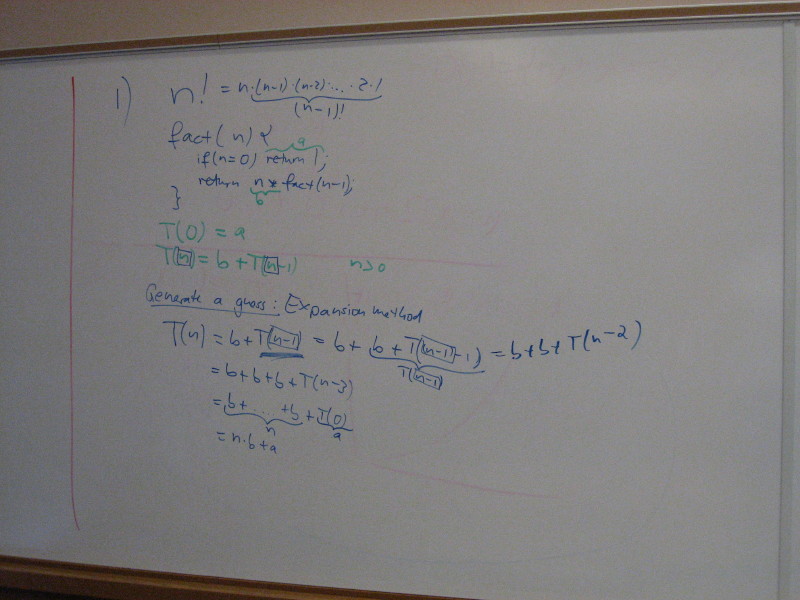 1) n! = n·(n-1)·(n-2)·...·2·1
(n-1)!
fact(n) {
a
if(n=0) return 1;
return n * fact(n-1);
b
}
T(0) = a
T(n) = b + T(n-1) n>0
Generate a guess: Expansion method
T(n) = b + T(n-1) = b + b + T(n-1-1) = b+b+T(n-2)
T(n-1)
= b+b+b+T(n-3)
= b+...+b+T(0)
n a
= n·b+a